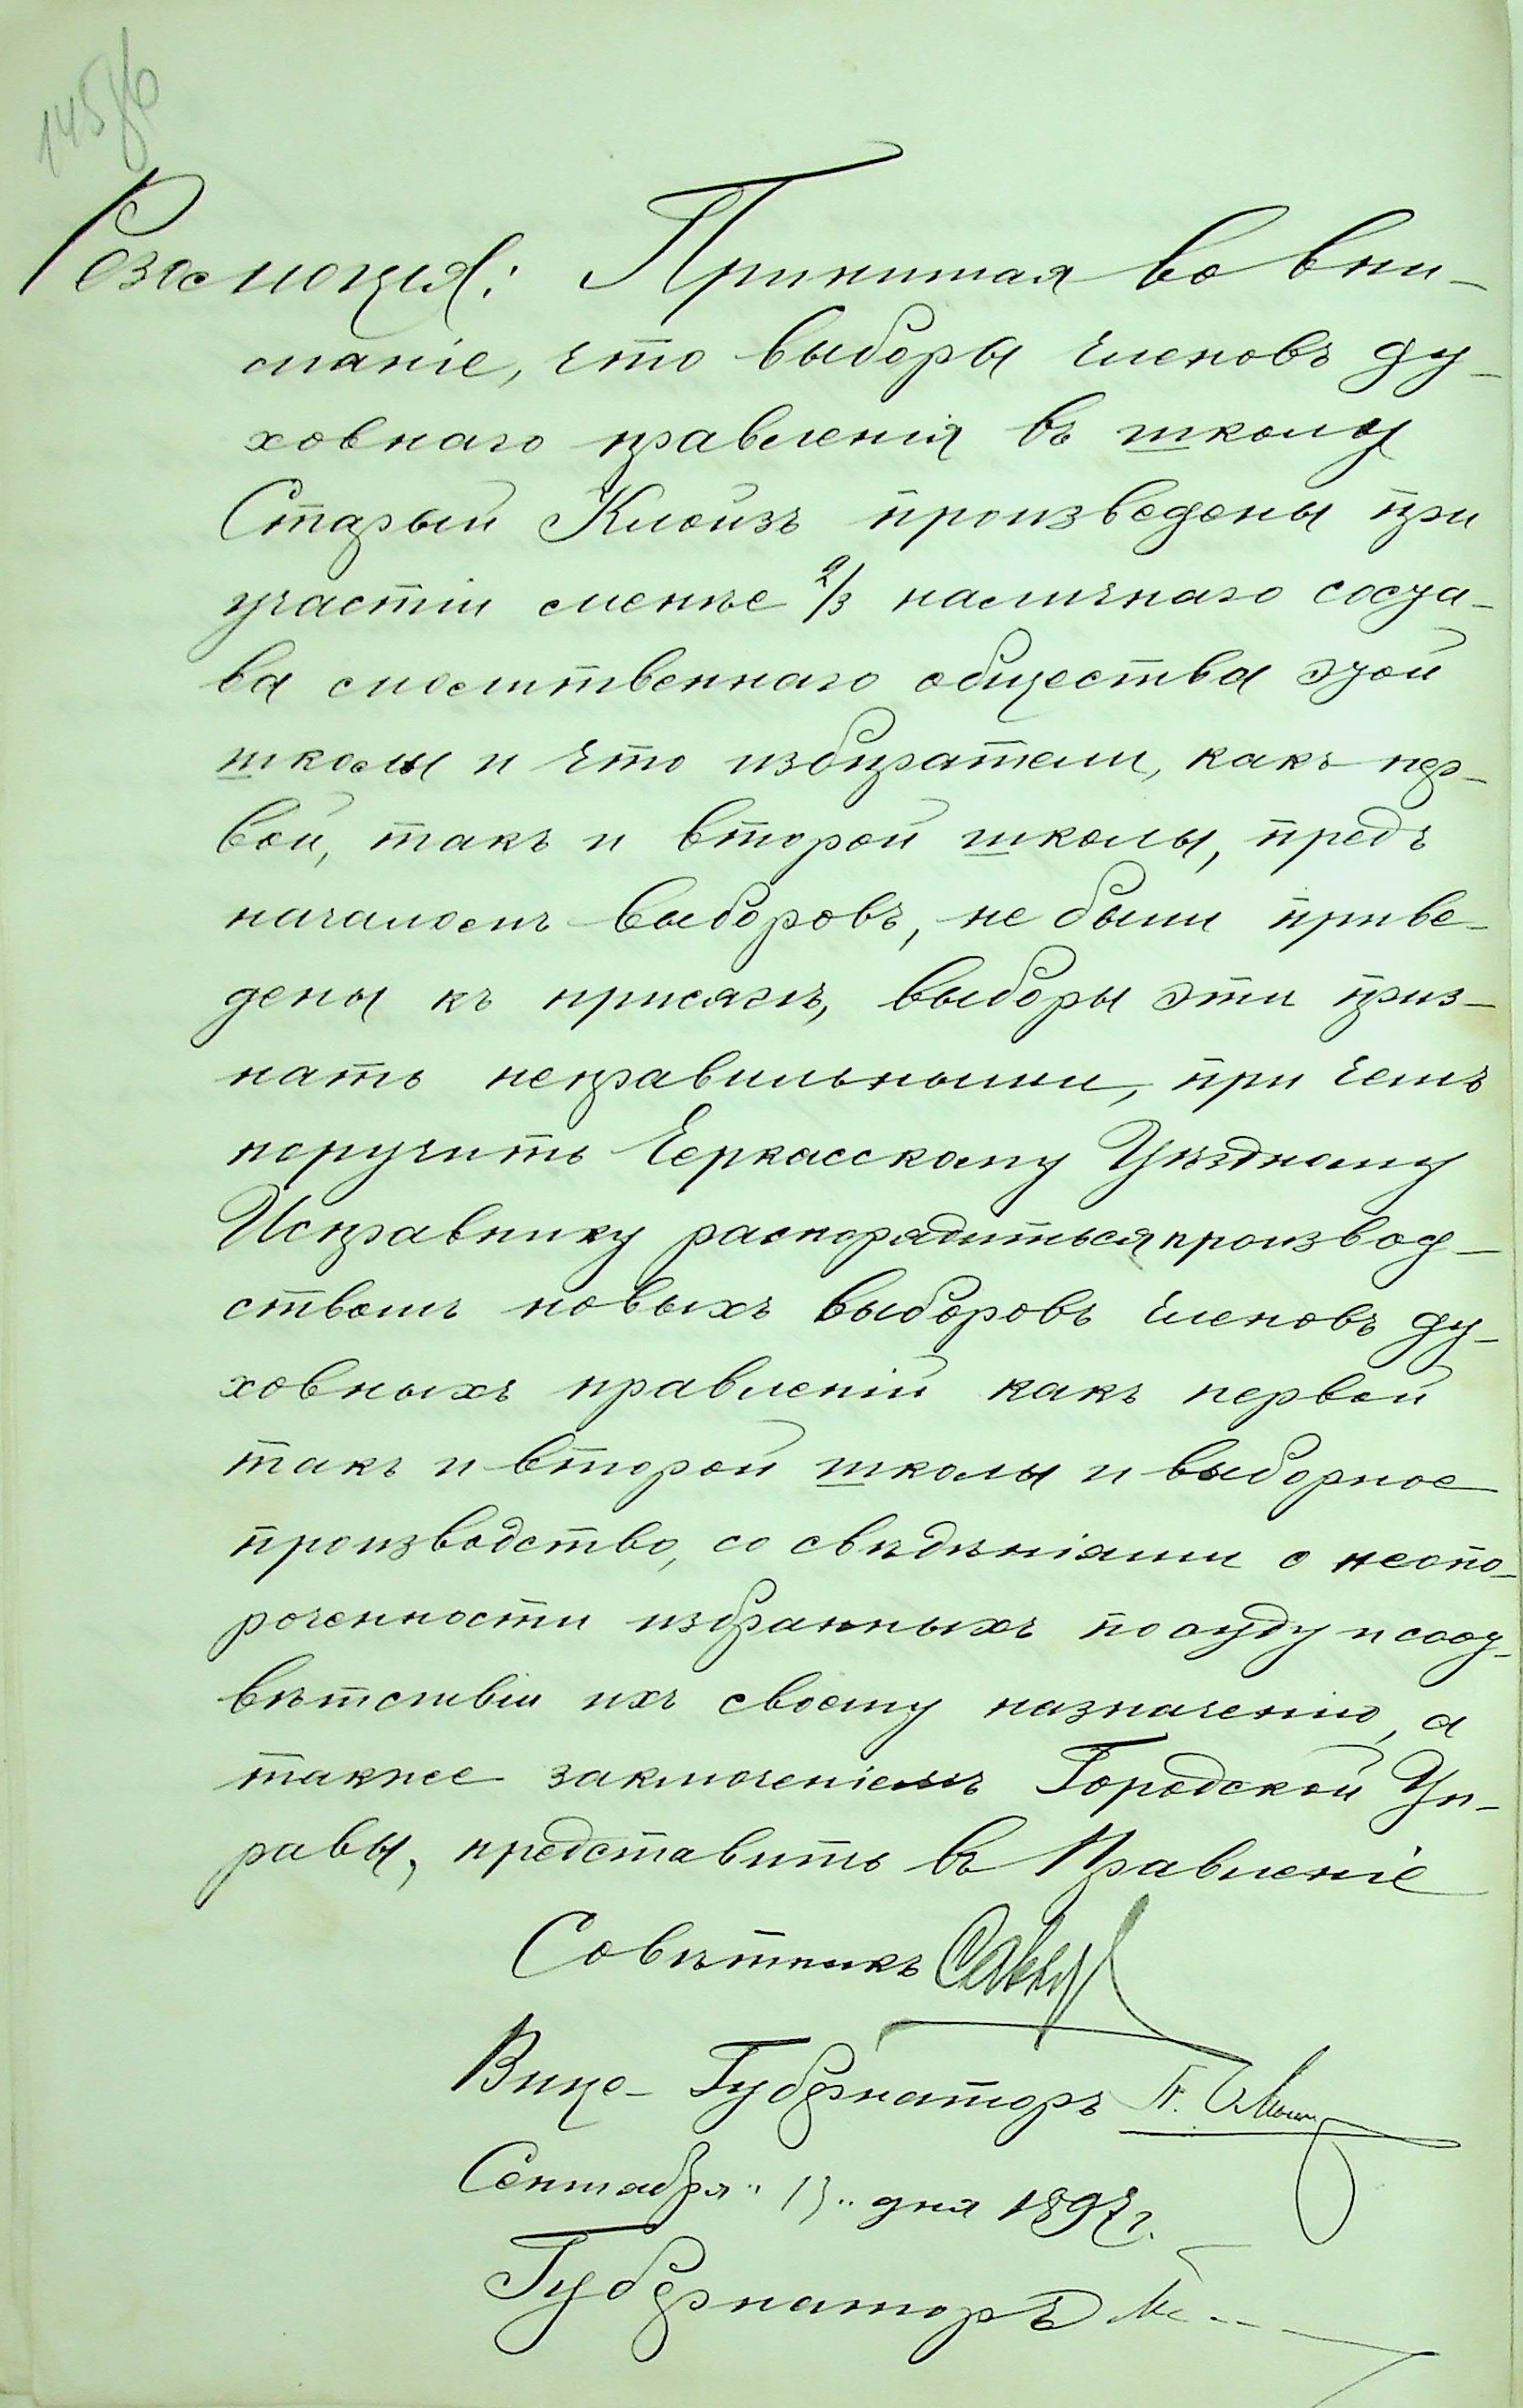 145 об
Резолюція: Принимая во вни-
маніе, что выборы членовъ ду-
ховнаго правленія въ школу
Старый Клойзъ произведены при
участіи менѣе 2/3 наличнаго соста-
ва молитвеннаго общества этой
школы и что избиратели, какъ пер-
вой, такъ и второй школы, предъ
началомъ выборовъ, не были приве-
дены къ присягѣ, выборы эти приз-
нать неправильными, при чемъ
поручить Черкасскому Уѣздному
Исправнику распорядиться производ-
ствомъ новыхъ выборовъ членовъ ду-
ховныхъ правленій какъ первой
такъ и второй школы и выборное
производство, со свѣдѣніями о неопо-
роченности избранныхъ по суду и соот-
вѣтствіи ихъ своему назначенію, а
также заключеніемъ Городской Уп-
равы, представить въ Правленіе
Совѣтникъ
Вице-Губернаторъ
Сентября "13" дня 1897 г.
Губернаторъ